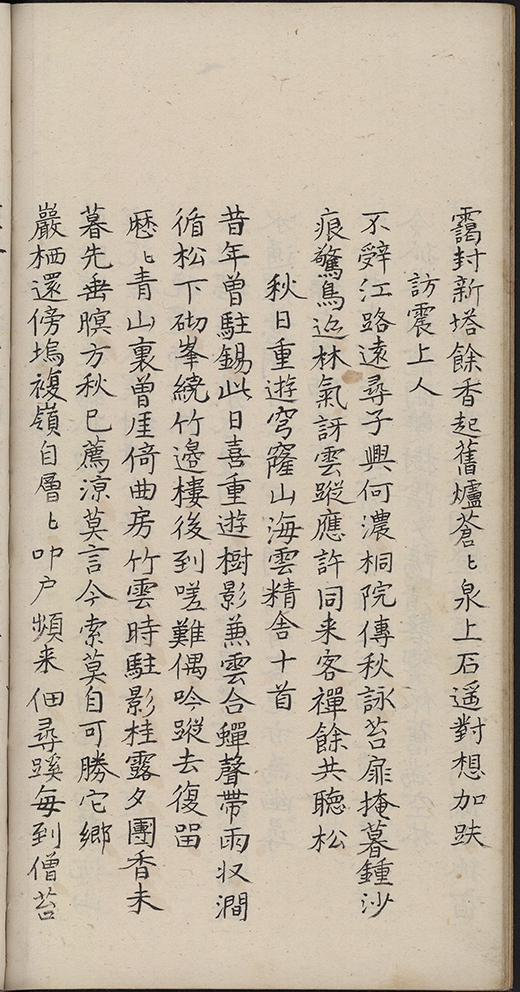 靄封新塔餘香起舊爐蒼〻泉上石遥對想加趺
訪震上人
不辤江路遠尋子興何濃桐院傳秋詠苔扉掩暮鍾沙
痕驚鳥迹林氣訝雲蹤應許同来客禪餘共聽松
秋日重遊穹窿山海雲精舍十首
昔年曾駐錫此日喜重遊樹影兼雲合蟬聲帶雨収澗
循松下砌峯繞竹邊樓後到嗟難偶吟蹤去復畱
歷〻青山裏曾厓倚曲房竹雲時駐影桂露夕團香未
暮先垂暝方秋已薦涼莫言今索莫自可勝它鄉
巖栖還傍塢複嶺自層〻叩户頻来佃尋蹊每到僧苔